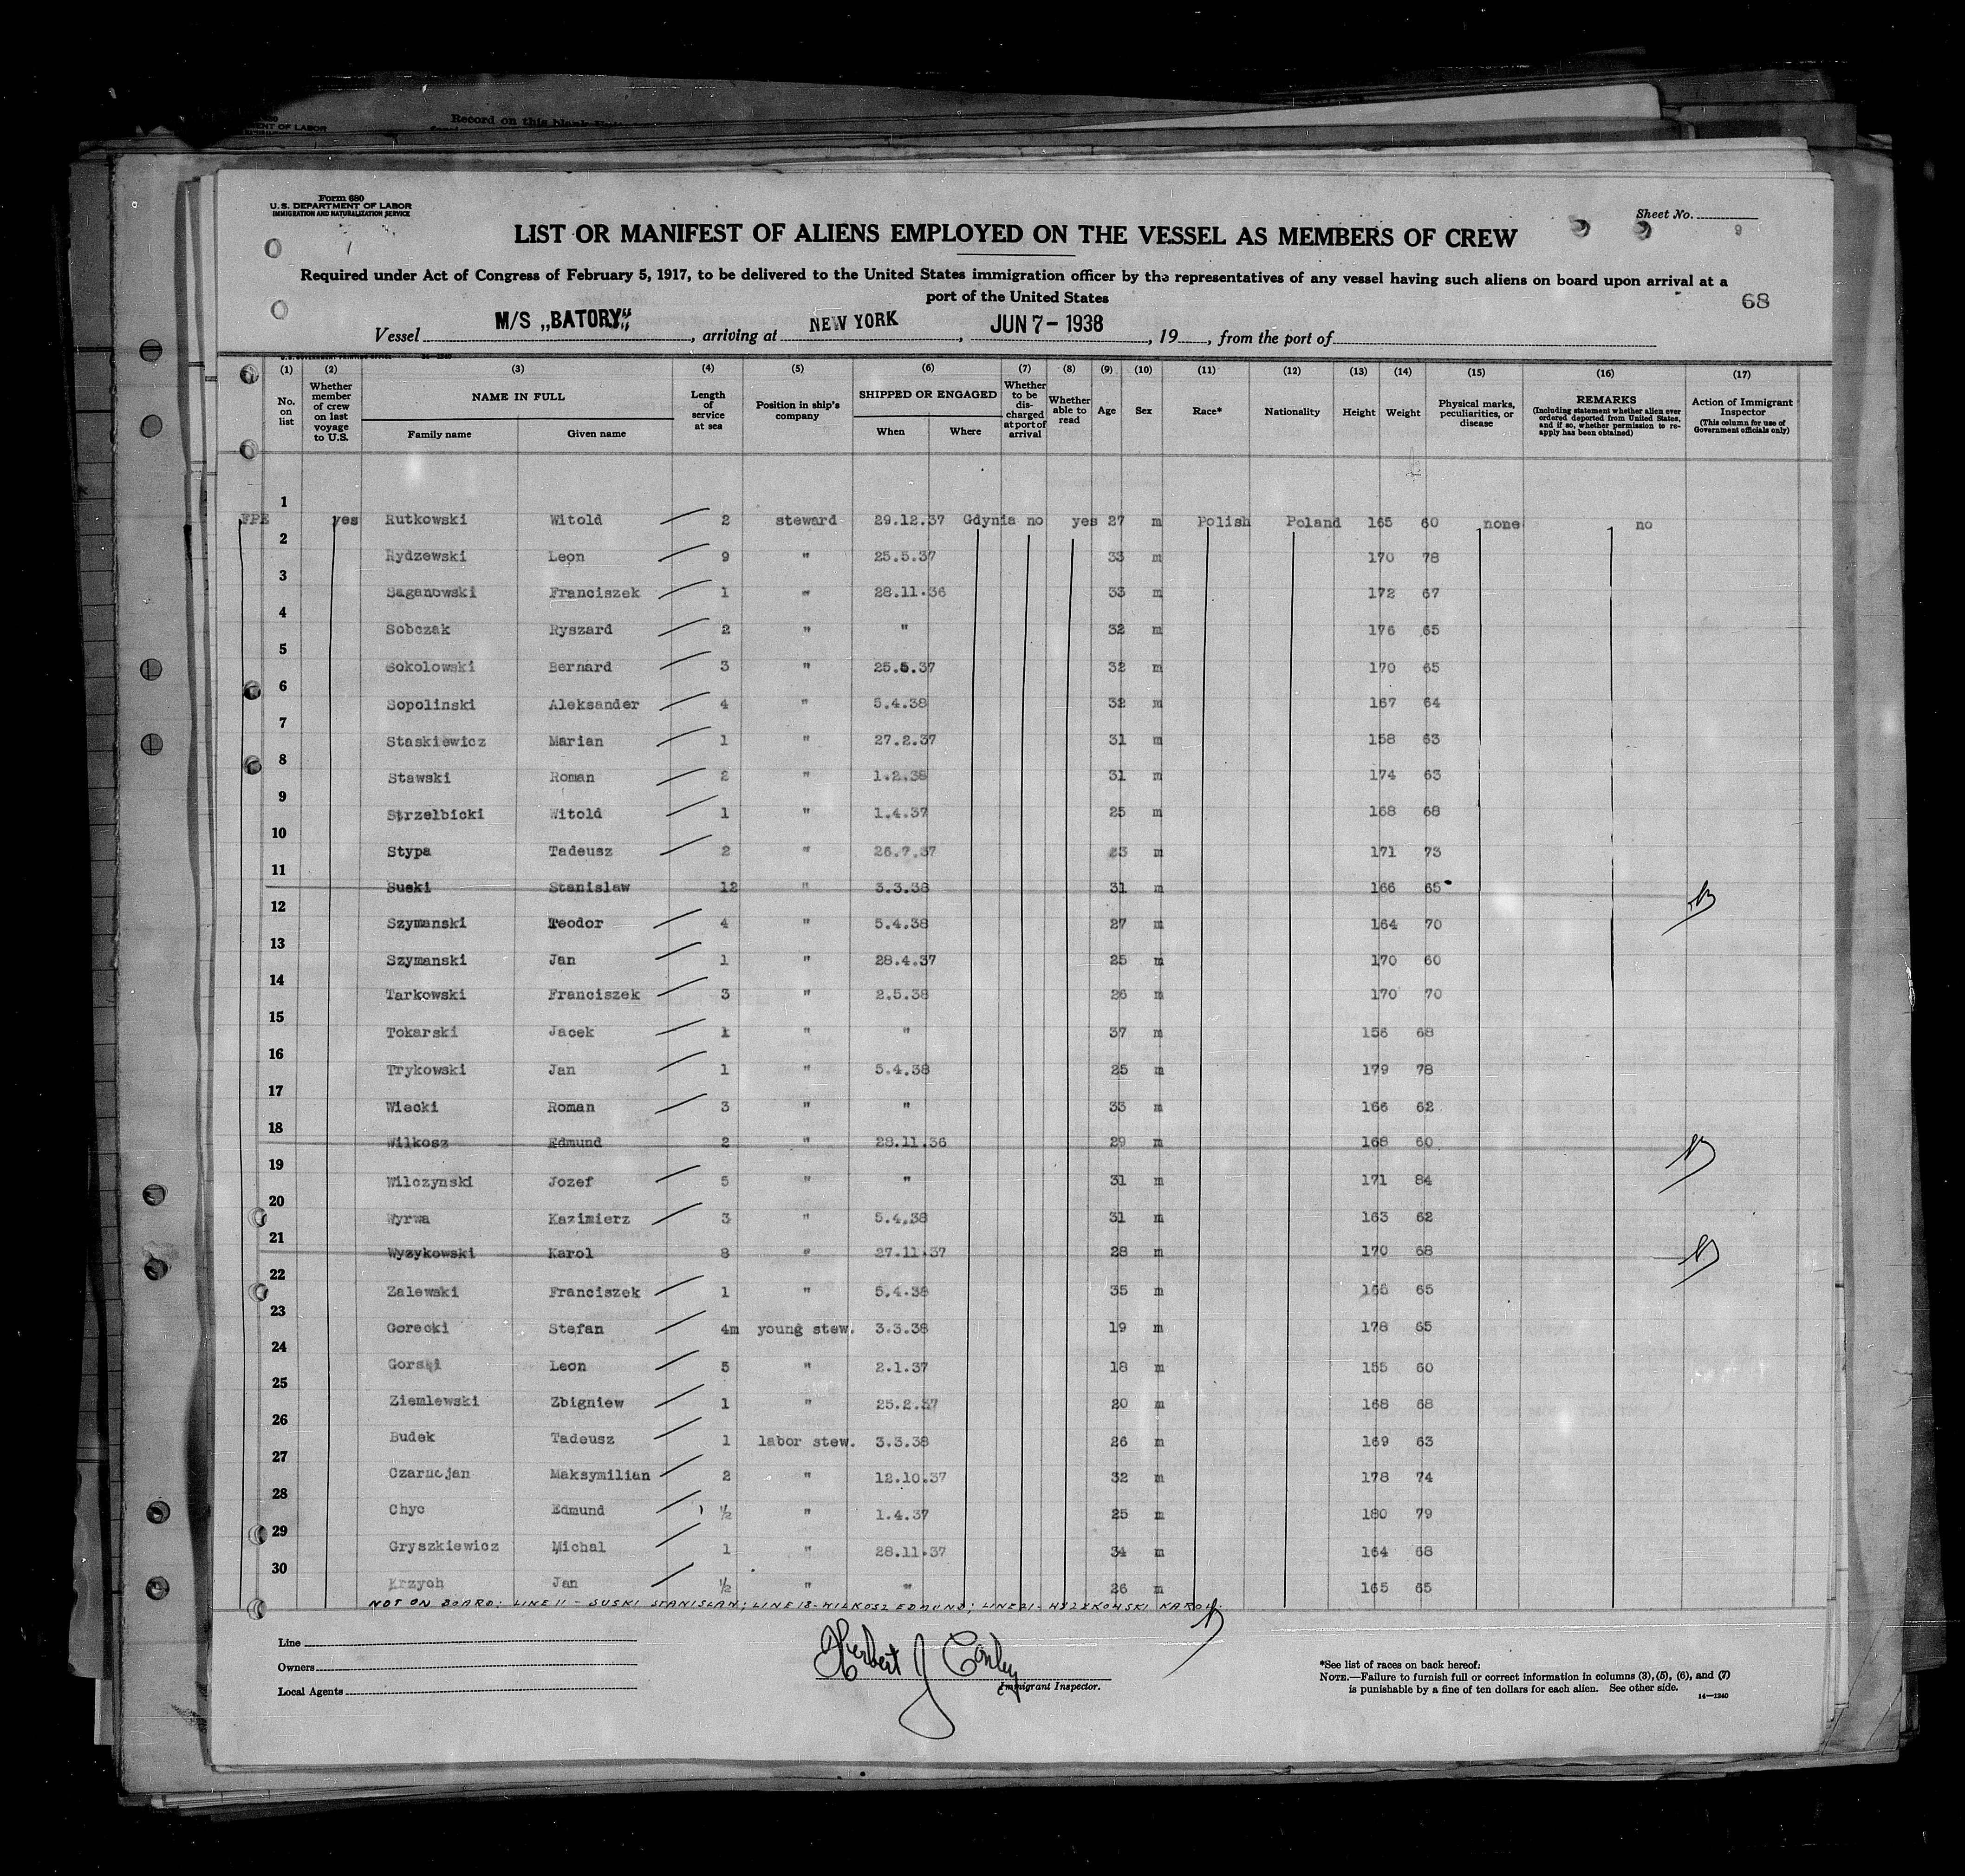 Record on this blank
ENT OF LABOR
Form 680
U. S. DEPARTMENT OF LABOR
IMMIGRATION AND NATURALIZATION SERVICE
Sheet No.
9
LIST OR MANIFEST OF ALIENS EMPLOYED ON THE VESSEL AS MEMBERS OF CREW
Required under Act of Congress of February 5, 1917, to be delivered to the United States immigration officer by the representatives of any vessel having such aliens on board upon arrival at a
port of the United States
68
Vessel M/S „BATORY“, arriving at NEW YORK, JUN 7 - 1938, 19, from the port of
(1) (2) (3) (4) (5) (6) (7) (8) (9) (10) (11) (12) (13) (14) (15) (16) (17)
No. on list
Whether member of crew on last voyage to U.S.
NAME IN FULL
Family name Given name
Length of service at sea
Position in ship's company
SHIPPED OR ENGAGED
When Where
Whether to be discharged at port of arrival
Whether able to read
Age
Sex
Race*
Nationality
Height
Weight
Physical marks, peculiarities, or disease
REMARKS
(Including statement whether alien ever ordered deported from United States, and if so, whether permission to re-apply has been obtained)
Action of Immigrant Inspector
(This column for use of Government officials only)
1 FPE yes Rutkowski Witold 2 steward 29.12.37 Gdynia no yes 27 m Polish Poland 165 60 none no
2 Rydzewski Leon 9 " 25.5.37 33 m 170 78
3 Saganowski Franciszek 1 " 28.11.36 33 m 172 67
4 Sobczak Ryszard 2 " " 32 m 176 65
5 Sokolowski Bernard 3 " 25.5.37 32 m 170 65
6 Sopolinski Aleksander 4 " 5.4.38 32 m 167 64
7 Staskiewicz Marian 1 " 27.2.37 31 m 158 63
8 Stawski Roman 2 " 1.2.38 31 m 174 63
9 Strzelbicki Witold 1 " 1.4.37 25 m 168 68
10 Stypa Tadeusz 2 " 26.7.37 23 m 171 73
11 Suski Stanislaw 12 " 3.3.38 31 m 166 65
12 Szymanski Teodor 4 " 5.4.38 27 m 164 70
13 Szymanski Jan 1 " 28.4.37 25 m 170 60
14 Tarkowski Franciszek 3 " 2.5.38 26 m 170 70
15 Tokarski Jacek 1 " " 37 m 156 68
16 Trykowski Jan 1 " 5.4.38 25 m 179 78
17 Wiecki Roman 3 " " 33 m 166 62
18 Wilkosz Edmund 2 " 28.11.36 29 m 168 60
19 Wilczynski Jozef 5 " " 31 m 171 84
20 Wyrwa Kazimierz 3 " 5.4.38 31 m 163 62
21 Wyzykowski Karol 8 " 27.11.37 28 m 170 68
22 Zalewski Franciszek 1 " 5.4.38 35 m 168 65
23 Gorecki Stefan 4m young stew. 3.3.38 19 m 178 65
24 Gorski Leon 5 " 2.1.37 18 m 155 60
25 Ziemlewski Zbigniew 1 " 25.2.37 20 m 168 68
26 Budek Tadeusz 1 labor stew. 3.3.38 26 m 169 63
27 Czarnojan Maksymilian 2 " 12.10.37 32 m 178 74
28 Chyc Edmund ½ " 1.4.37 25 m 180 79
29 Gryszkiewicz Michal 1 " 28.11.37 34 m 164 68
30 Krzych Jan ½ " " 26 m 165 65
NOT ON BOARD: LINE 11 - SUSKI STANISLAW; LINE 18 - WILKOSZ EDMUND; LINE 21 - WYZYKOWSKI KAROL.
Line
Owners
Local Agents
Herbert J Conley
Immigrant Inspector.
*See list of races on back hereof.
NOTE.—Failure to furnish full or correct information in columns (3), (5), (6), and (7)
is punishable by a fine of ten dollars for each alien. See other side.
14—1240